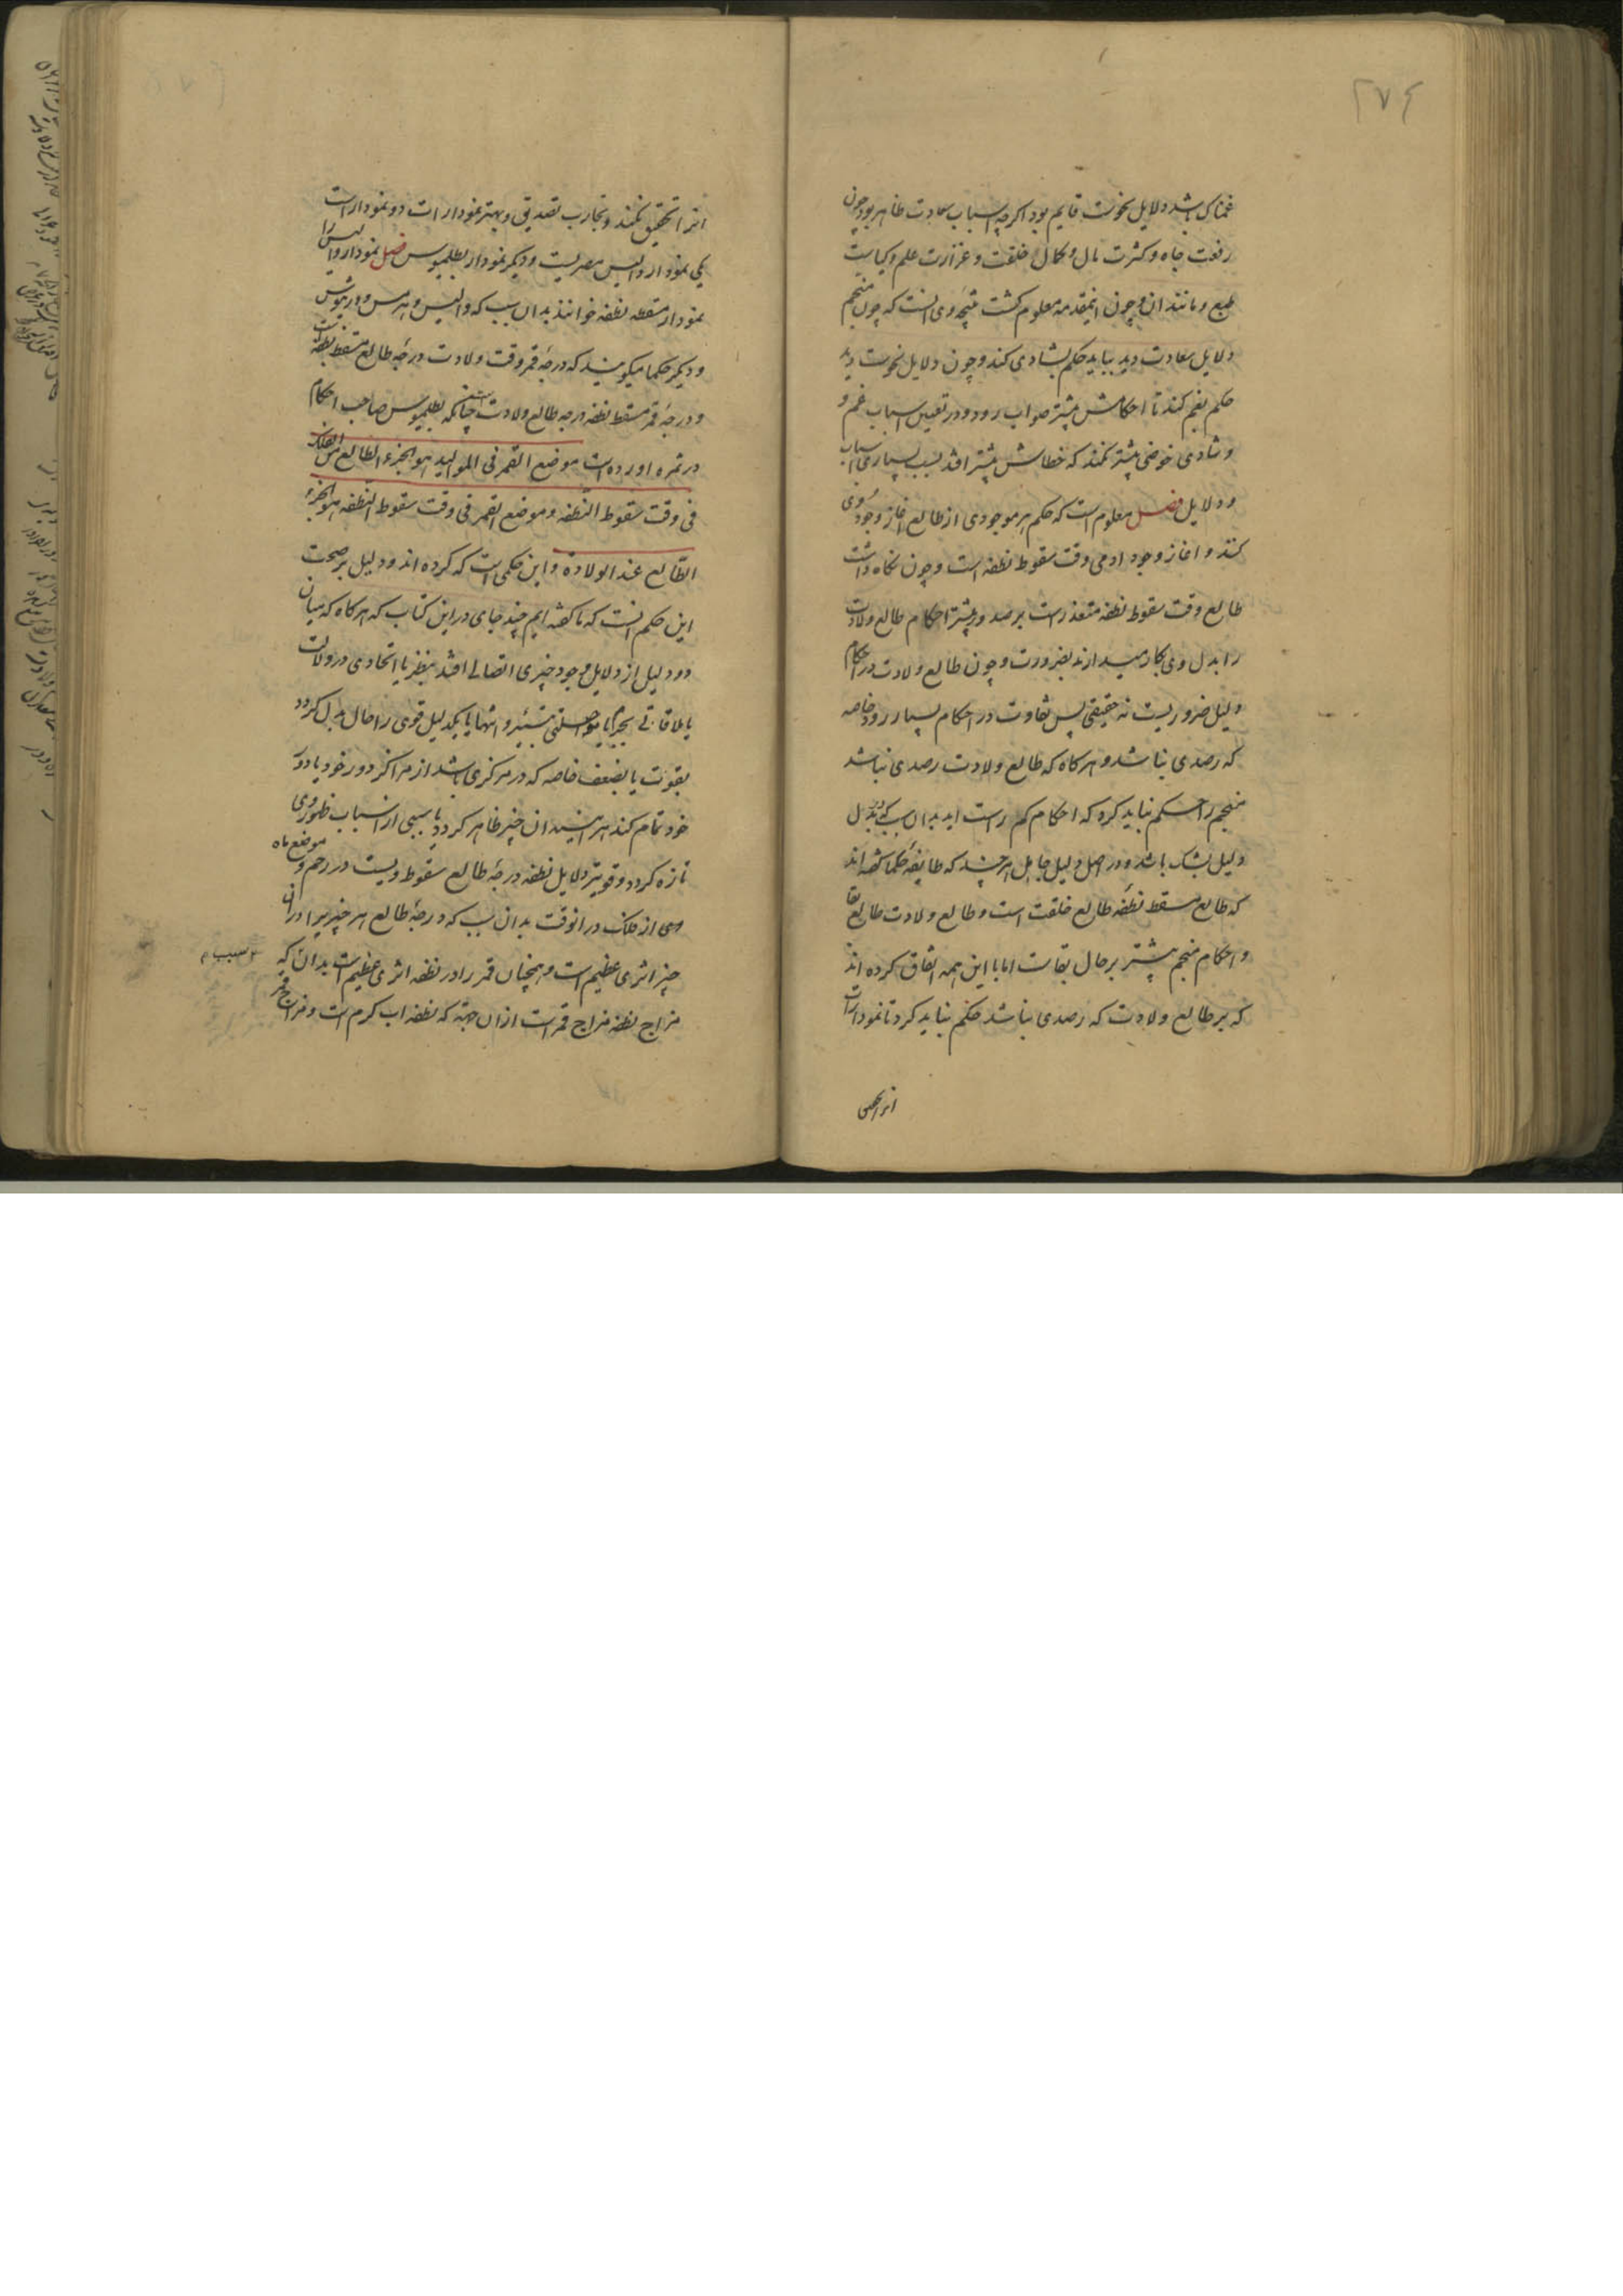 ۲۷۴
غمناک باشد دلایل نحوست قایم بود اکرچه اسباب سعادت ظاهر بود چون
رفعت جاه و کثرت مال و کمال خلقت و غزارت علم و کیاست
طبع و مانند ان و چون اینمقدمه معلوم کشت نتیجه وی انست که چون منجم
دلایل سعادت دید بباید حکم بشادی کند و چون دلایل نحوست دید
حکم بغم کند تا احکامش بیشتر صواب رود و در تعیین اسباب غم و
و شادی خوضی بیشتر نکند که خطاش بیشتر افتد بسبب بسیاری اسباب
و دلایل فصل معلوم است که حکم هر موجودی از طالع اغاز وجود وی
کنند و اغاز وجود ادمی وقت سقوط نطفه است و چون نکاه داشت
طالع وقت سقوط نطفه متعذر است برصد و بیشتر احکام طالع ولادت
را بدل وی بکار میدارند بضرورت و چون طالع ولادت در احکام
دلیل ضروریست نه حقیقی پس تفاوت در احکام بسیار رود خاصه
که رصدی نباشد و هر کاه که طالع ولادت رصدی نباشد
منجم را حکم نباید کرد که احکام کم راست اید بدان سبب که در بدل
دلیل بشک باشد و در اصل دلیل جاهل هر چند که طایفه حکما کفته اند
که طالع مسقط نطفه طالع خلقت است و طالع ولادت طالع بقا
و احکام منجم بیشتر بر حال بقاست اما با این همه اتفاق کرده اند
که بر طالع ولادت که رصدی نباشد حکم نباید کرد تا نمودارات
انرا تحقیق
انرا تحقیق نکند و تجارب تصدیق و بهتر نمودارات دو نموداراست
یکی نمودار والیس مصریست و دیکر نمودار بطلمیوس فصل نمودار والیس را
نمودار مسقط نطفه خوانند بدان سبب که والیس و هرمس و دورنیوس
و دیکر حکما میکویند که درجهٔ قمر وقت ولادت درجهٔ طالع مسقط نطفه است
و درجهٔ قمر مسقط نطفه درجه طالع ولادت است چنانکه بطلمیوس صاحب احکام
در ثمره اورده است موضع القمر فی الموالید هو الجزء الطالع من الفلک
فی وقت سقوط النطفه و موضع القمر فی وقت سقوط النطفه هو الجزء
الطالع عند الولادة و این حکمی است که کرده اند و دلیل بر صحت
این حکم انست که ما کفته ایم چند جای در این کتاب که هر کاه که میان
دو دلیل از دلایل وجود چیزی اتصالی افتد بنظر یا اتحادی در ولات
یا ملاقاتی بجرم یا مواصلتی بتسییر و انتها یا یکدلیل قوی را حال بدل کردد
بقوت یا بضعف خاصه که در مرکزی باشد از مراکز دور خود یا دور
خود تمام کند هر اینه ان چیز ظاهر کردد یا سببی از اسباب ظهور وی
تازه کردد و قویتر دلایل نطفه درجهٔ طالع سقوط ویست در رحم و موضع ماه
وی از فلک در انوقت بدان سبب که درجهٔ طالع هر چیزیرا در ان
چیز اثری عظیم است و همچنان قمر را در نطفه اثری عظیم است بدان که
سبب
مزاج نطفه مزاج قمر است از ان جهة که نطفه اب کرم است و مزاج قمر